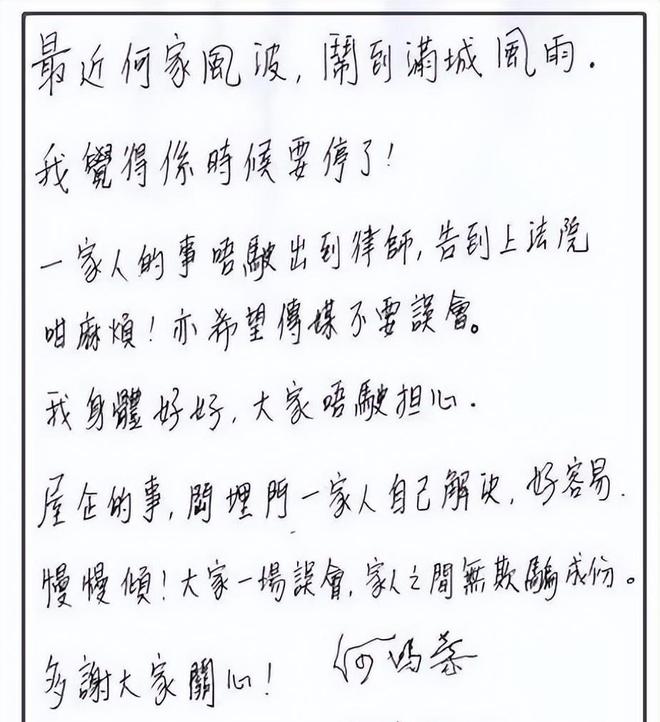 最近何家風波,鬧到滿城風雨.
我覺得係時候要停了!
一家人的事唔駛出到律師,告到上法院
咁麻煩!亦希望傳媒不要誤會。
我身體好好,大家唔駛担心.
屋企的事,閂埋門一家人自己解決,好容易.
慢慢傾!大家一場誤會,家人之間無欺騙成份。
多謝大家關心! 何鴻燊